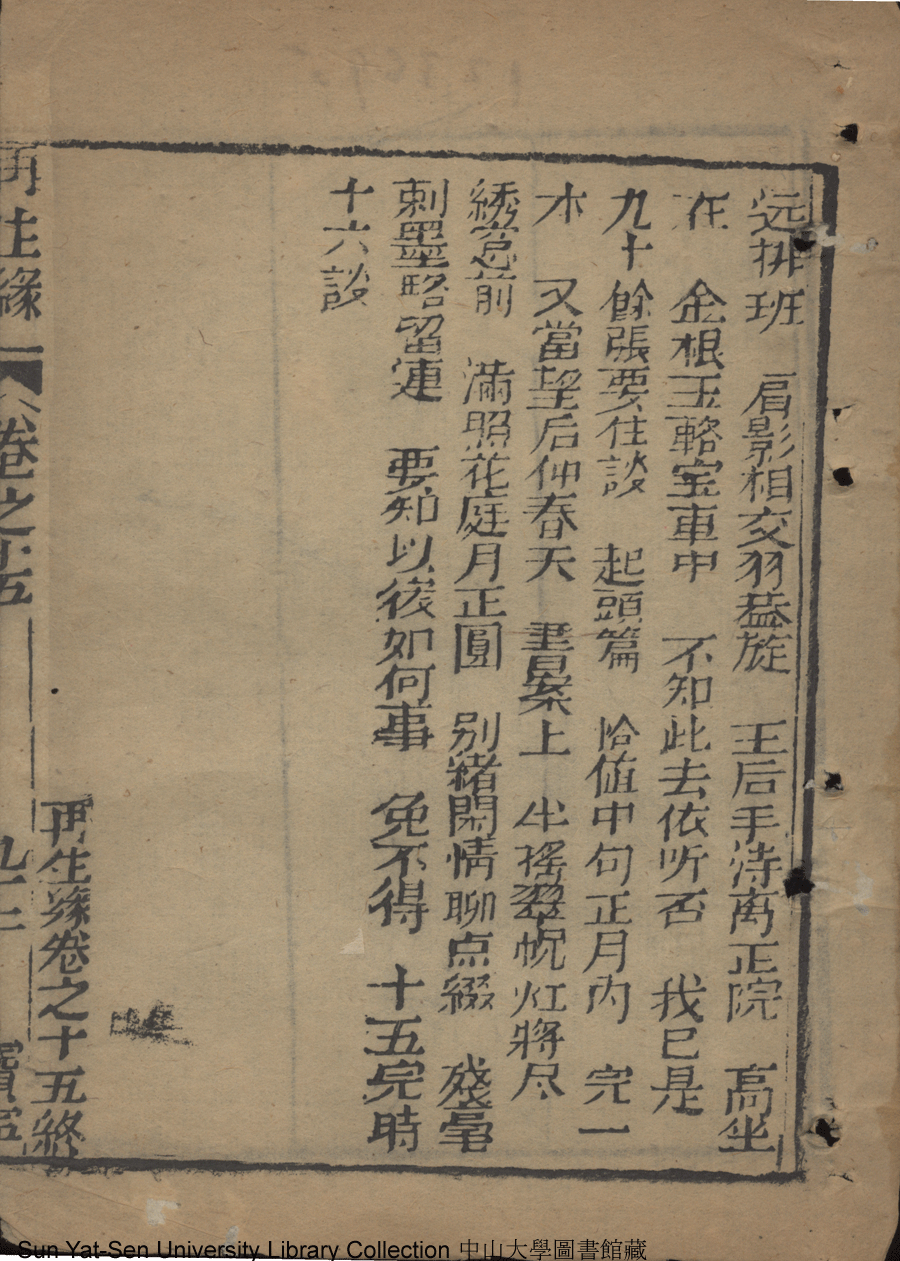 远排班　肩影相交羽葢旋　王后手済离正院　高坐
在　金根玉輅宝車中　不知此去依听否　我已是
九十餘張要住談　起頭篇　恰值中旬正月内　完一
木　又當望后仲春天　書案上　坐搖翠幌灯將尽
綉窓前　滿照花庭月正圓　別緒閑情聊点綴　殘毫
剩墨略留連　要知以後如何事　免不得　十五完時
十六談
再生緣卷之十五終
再生緣　卷之十五
Sun Yat-Sen University Library Collection 中山大學圖書館藏